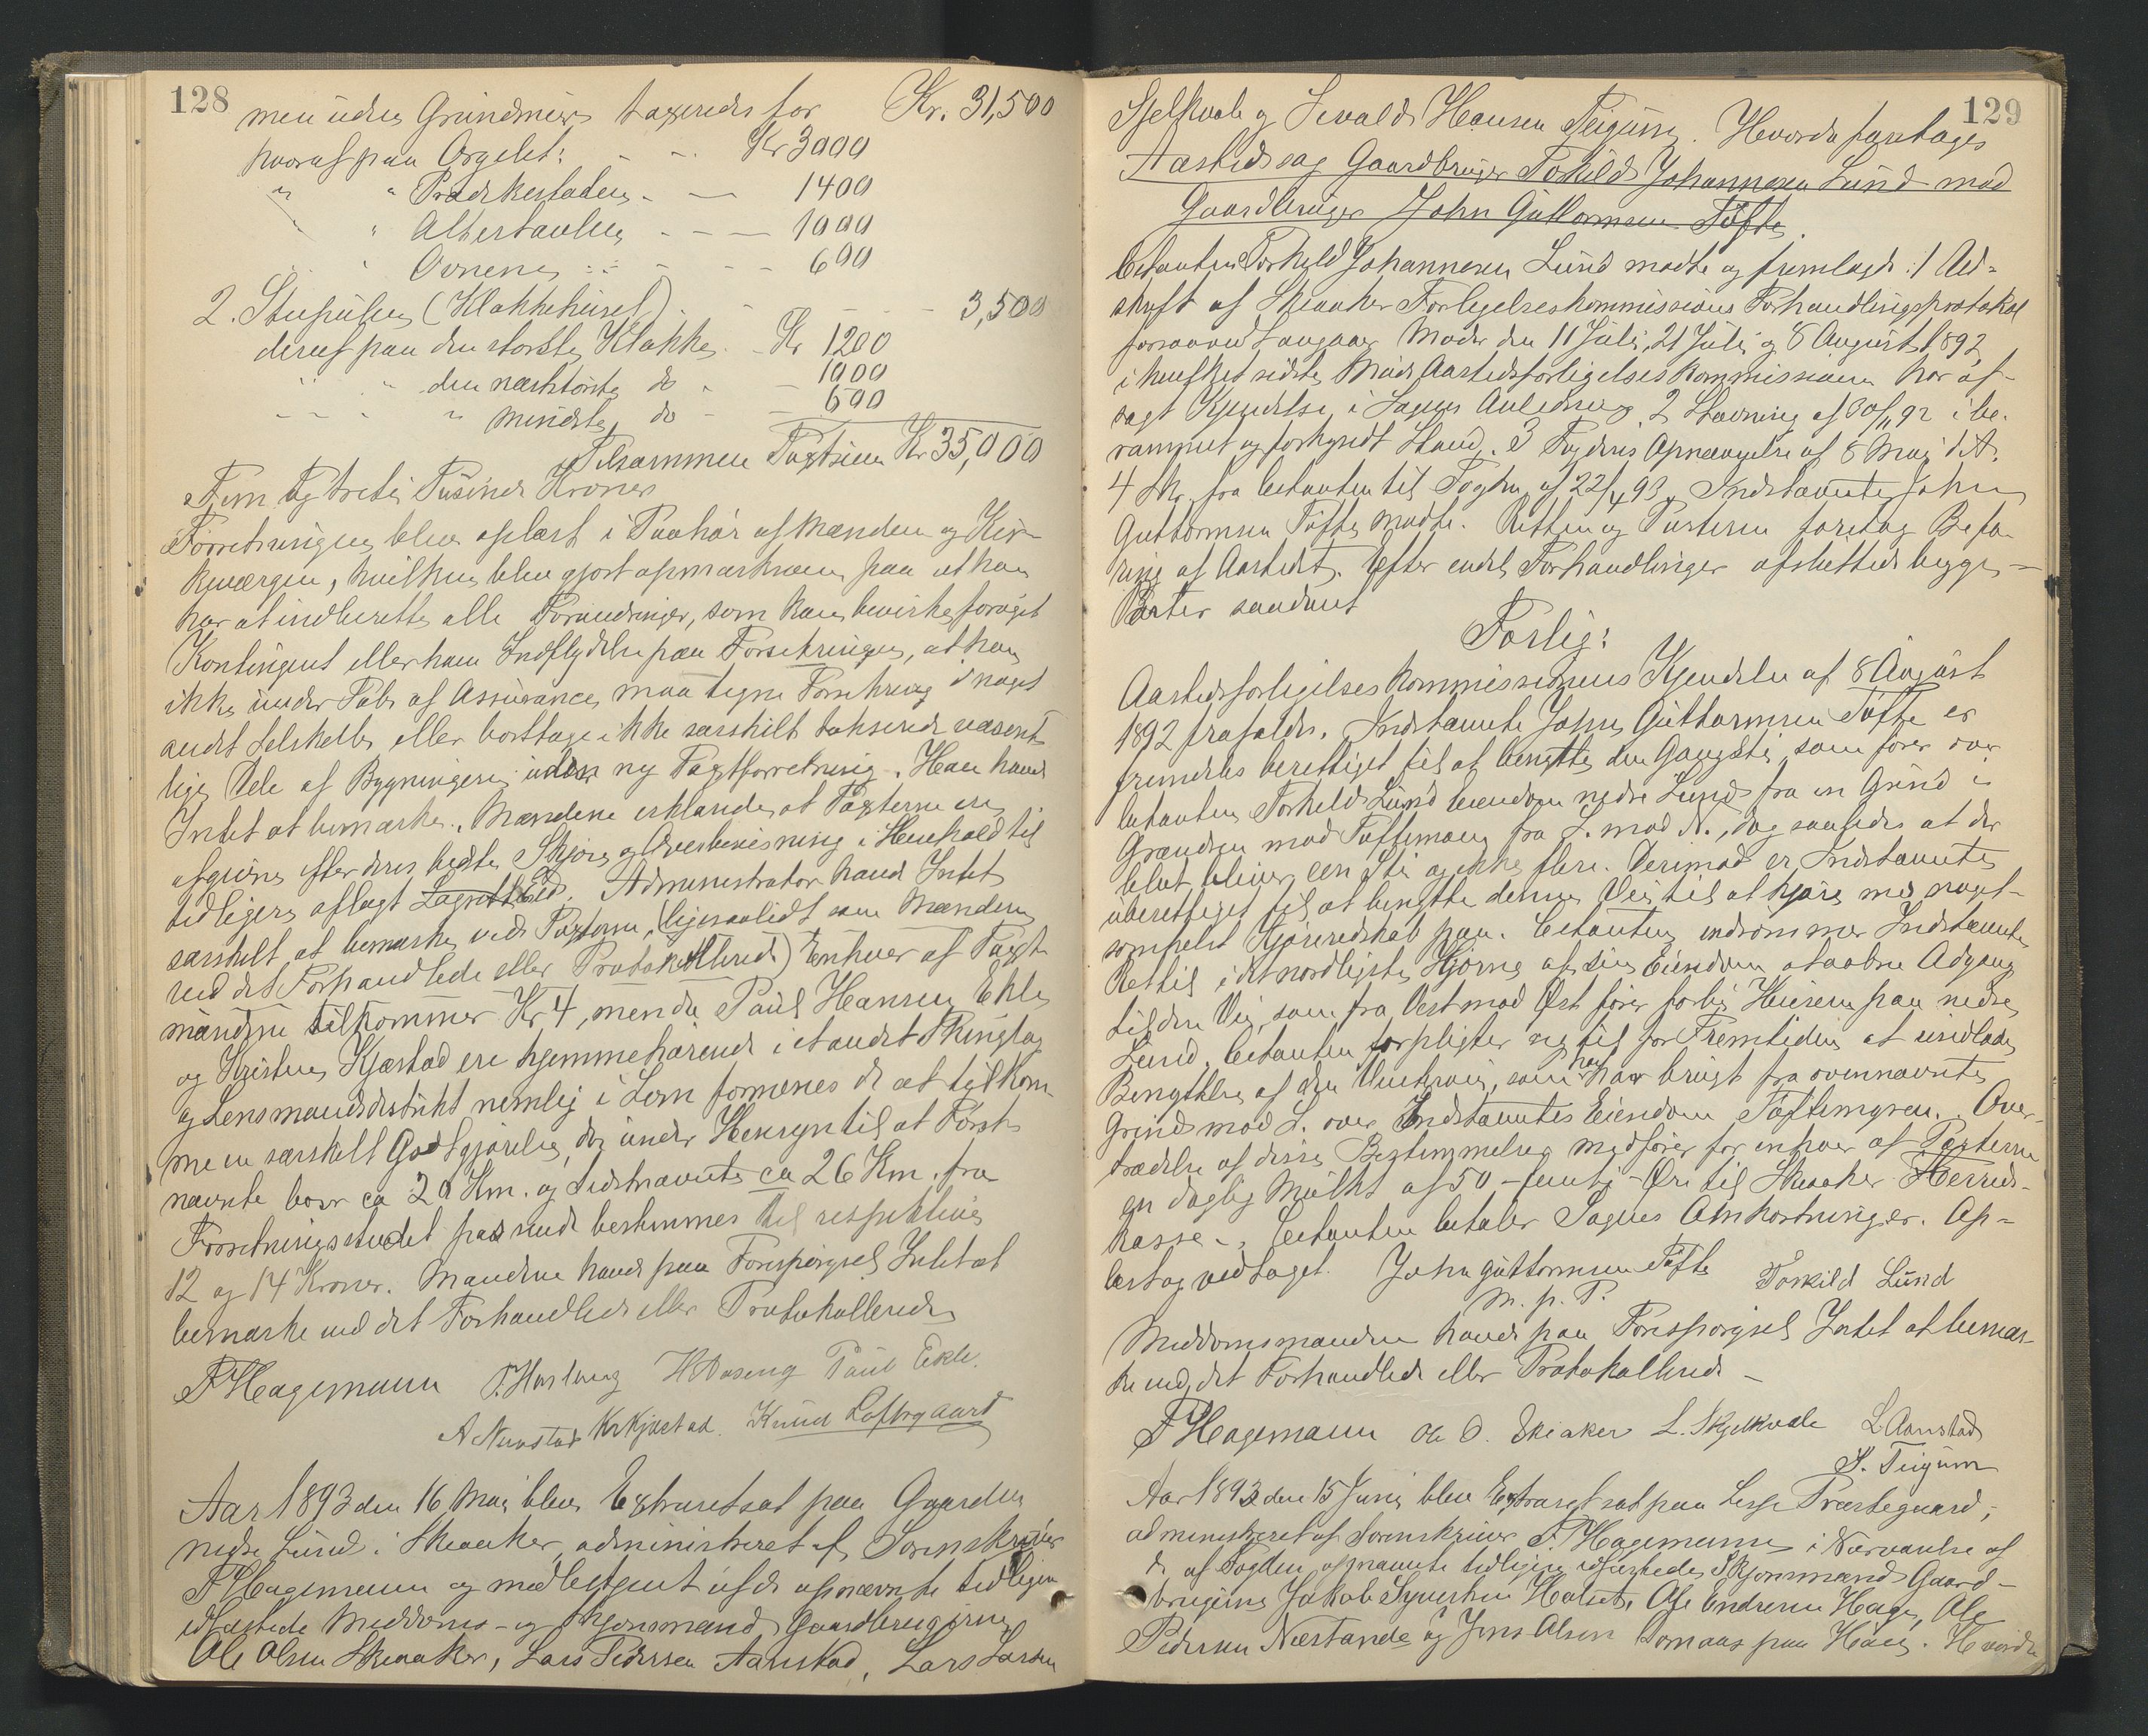 128
men uden Grundmur taxeredes for Kr. 31,500
hvoraf paa Orgelet: - - Kr 3000
" " Prædikestolen - — 1400
" " Altertavlen - - — 1000
" " Ovnene - - - 600
2. Støpulen (Klokkehuset) - - - - 3,500
deraf paa den største Klokke - Kr 1200
" " den næststørste do - — 1000
" " " mindste do - — 600
Tilsammen Taxtsum Kr 35,000
Fem og treti Tusinde Kroner
Forretningen blev oplæst i Paahør af Mændene og Kir-
keværgen, hvilken blev gjort opmærksom paa at han
har at indberette alle Forandringer, som kan bevirke forøget
Kontingent eller have Indflydelse paa Forsikringen, at han
ikke under Tab af Assurance maa tegne Forsikring i noget
andet Selskab, eller borttage ikke særskilt takserede væsent-
lige Dele af Bygningerne uden ny Taxtforretning. Han havde
Intet at bemærke. Mændene erklærede, at Taxterne ere
afgivne efter deres bedste Skjøn og Overbevisning i Henhold til
tidligere aflagt Lagretteed. Administrator havde Intet
særskilt at bemærke ved Taxterne, (ligesaalidt som Mændene
ved det Forhandlede eller Protokollerede) Enhver af Taxt-
mændene tilkommer Kr 4, men da Paul Hansen Ekle
og Kristen Kjæstad ere hjemmehørende i et andet Thinglag
og Lensmandsdistrikt nemlig i Lom formenes de at tilkom-
me en særskilt Godtgjørelse, der under Hensyn til at Først-
nævnte boer ca 20 Km. og Sidstnævnte ca 26 Km. fra
Forretningsstedet passende bestemmes til respektive
12 og 14 Kroner. Mændene havde paa Forespørgsel Intet at
bemærke ved det Forhandlede eller Protokollerede
F Hagemann P. Harlaug H Aaseng Paul Ekle.
A Nunstad Kr Kjæstad. Knud Loftsgaard
Aar 1893 den 16 Mai blev Extraret sat paa Gaarden
nedre Lund i Skeaker, administreret af Sorenskriver
F Hagemann og medbetjent af de opnævnte tidligere
edfæstede Meddoms- og Skjønsmænd Gaardbrugerne
Ole Olsen Skeaker, Lars Pedersen Aanstad, Lars Larsen
129
Sjelkvale og Sevald Hansen Teigum. Hvorda foretages
Aastedssag Gaardbruger Torkild Johannesen Lund mod
Gaardbruger John Guttormsen Tofte.
Citanten Torkild Johannesen Lund mødte og fremlagde: 1 Ud-
skrift af Skeaker Forligelseskommissions Forhandlingsprotokol
forsaavid angaar Møder den 11 Juli, 21 Juli og 8 August 1892
i hvilket sidste Møde Aastedsforligelseskommissionen har af-
sagt Kjendelse i Sagens Anledning. 2 Stævning af 30/11 92 i be-
rammet og forkyndt Stand. 3 Fogderis Opnævnelse af 8 Mai d. A.
4 Skr. fra Citanten til Fogden af 22/4 93. Indstævnte John
Guttormsen Tofte mødte. Retten og Parterne foretog Befa-
ring af Aastedet. Efter endel Forhandlinger afsluttede begge
Parter saadant
Forlig:
Aastedsforligelseskommissionens Kjendelse af 8 August
1892 frafaldes. Indstævnte John Guttormsen Tofte er
fremdeles berettiget til at benytte den Gangsti, som fører over
Citanten Torkild Lund Eiendom nedre Lund fra en Grind i
Grændsen mod Toftemoen fra S. mod N., dog saaledes at der
blot bliver een Sti og ikke flere. Derimod er Indstævnte
uberettiget til at benytte denne Vei til at kjøre med noget-
somhelst Kjøreredskab paa. Citanten indrømmer Indstævnte
Ret til i det nordligste Hjørne af sin Eiendom at aabne Adgang
til den Vei, som fra Vest mod Øst fører forbi Husene paa nedre
Lund. Citanten forpligter sig til for Fremtiden at undlade
Benyttelse af den Vintervei, som han har brugt fra ovennævnte
Grind mod S. over Indstævntes Eiendom Toftemyren. Over-
trædelse af disse Bestemmelser medfører for enhver af Parterne
en daglig Mulkt af 50 - femti - Øre til Skeaker Herreds-
kasse. Citanten betaler Sagens Omkostninger. Op-
læst og vedtaget. John Guttormsen Tofte Torkild Lund
m. p. P.
Meddomsmændene havde paa Forespørgsel Intet at bemær-
ke ved det Forhandlede eller Protokollerede -
F Hagemann Ole O. Skeaker L. Skjelkvale L Aanstad
S. Teigum
Aar 1893 den 15 Juni blev Extraret sat paa Lesje Præstegaard,
administreret af Sorenskriver F. Hagemann i Nærværelse af
de af Fogden opnævnte tidligere edfæstede Skjønsmænd Gaard-
brugerne Jakob Syversen Holsæt, Ole Endresen Hage, Ole
Pedersen Næstande og Jens Olsen Lomaas paa Haug. Hvorda